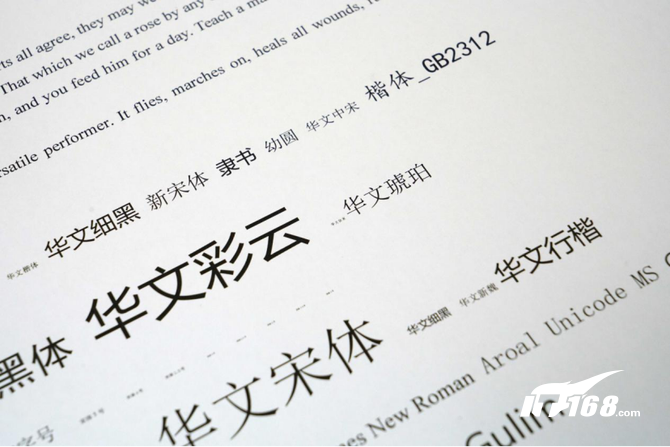 ts all agree, they may we
That which we call a rose by any
n, and you feed him for a day. Teach a ma
satile performer. It flies, marches on, heals all wounds, r
华文楷体 华文细黑 新宋体 隶书 幼圆 华文中宋 楷体_GB2312
华文彩云 华文琥珀
黑体
字号 华文宋体 华文细黑 华文新魏 华文行楷
es New Roman Aroal Unicode MS
Gulim
IT168.com